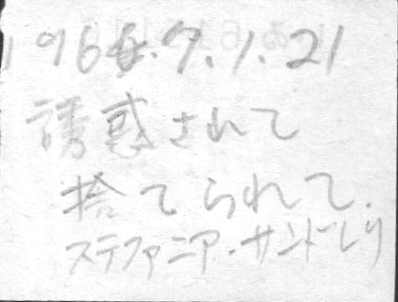 1965.7.1.21
誘惑されて
捨てられて.
ステファニア・サンドレリ